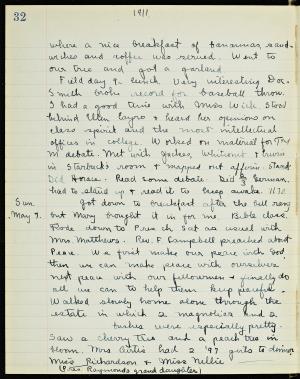 32
1911
where a nice breakfast of bananas, sand-
wiches and coffee was served. Went to
our tree and got a garland
Field day & lunch. Very interesting Dor.
Smith broke record for baseball throw.
I had a good time with Miss Wick. Stood
behind Ellen Cayro & heard her opinions on
class spirit and the most intellectual
offices in college. Worked on material for
M debate. Met with
in Starbuck's room & mapped out
Did Horace. Read some debate. Did German,
had to stand up & read it to keep awake. 11.30
Sun. got down to breakfast after the bell rang
May 7. but Mary brought it in for me. Bible class.
Rode down to Preach Sat as usual with
Mrs. Matthews. Rev. F. Campbell preached about
Peace. We a first make our peace with God
then we can make peace with ourselves
next peace with our fellowmen & finally do
all we can to help them keep peaceful.
Walked slowly home alone through the
estate in which 2 magnolias and 2
bushes were especially pretty.
Saw a cherry tree and a peach tree in
bloom. Mrs. Curtis had 2 '97 girls to dinner
Miss Richardson & Miss Nellie
(Pres Raymond's granddaughter)